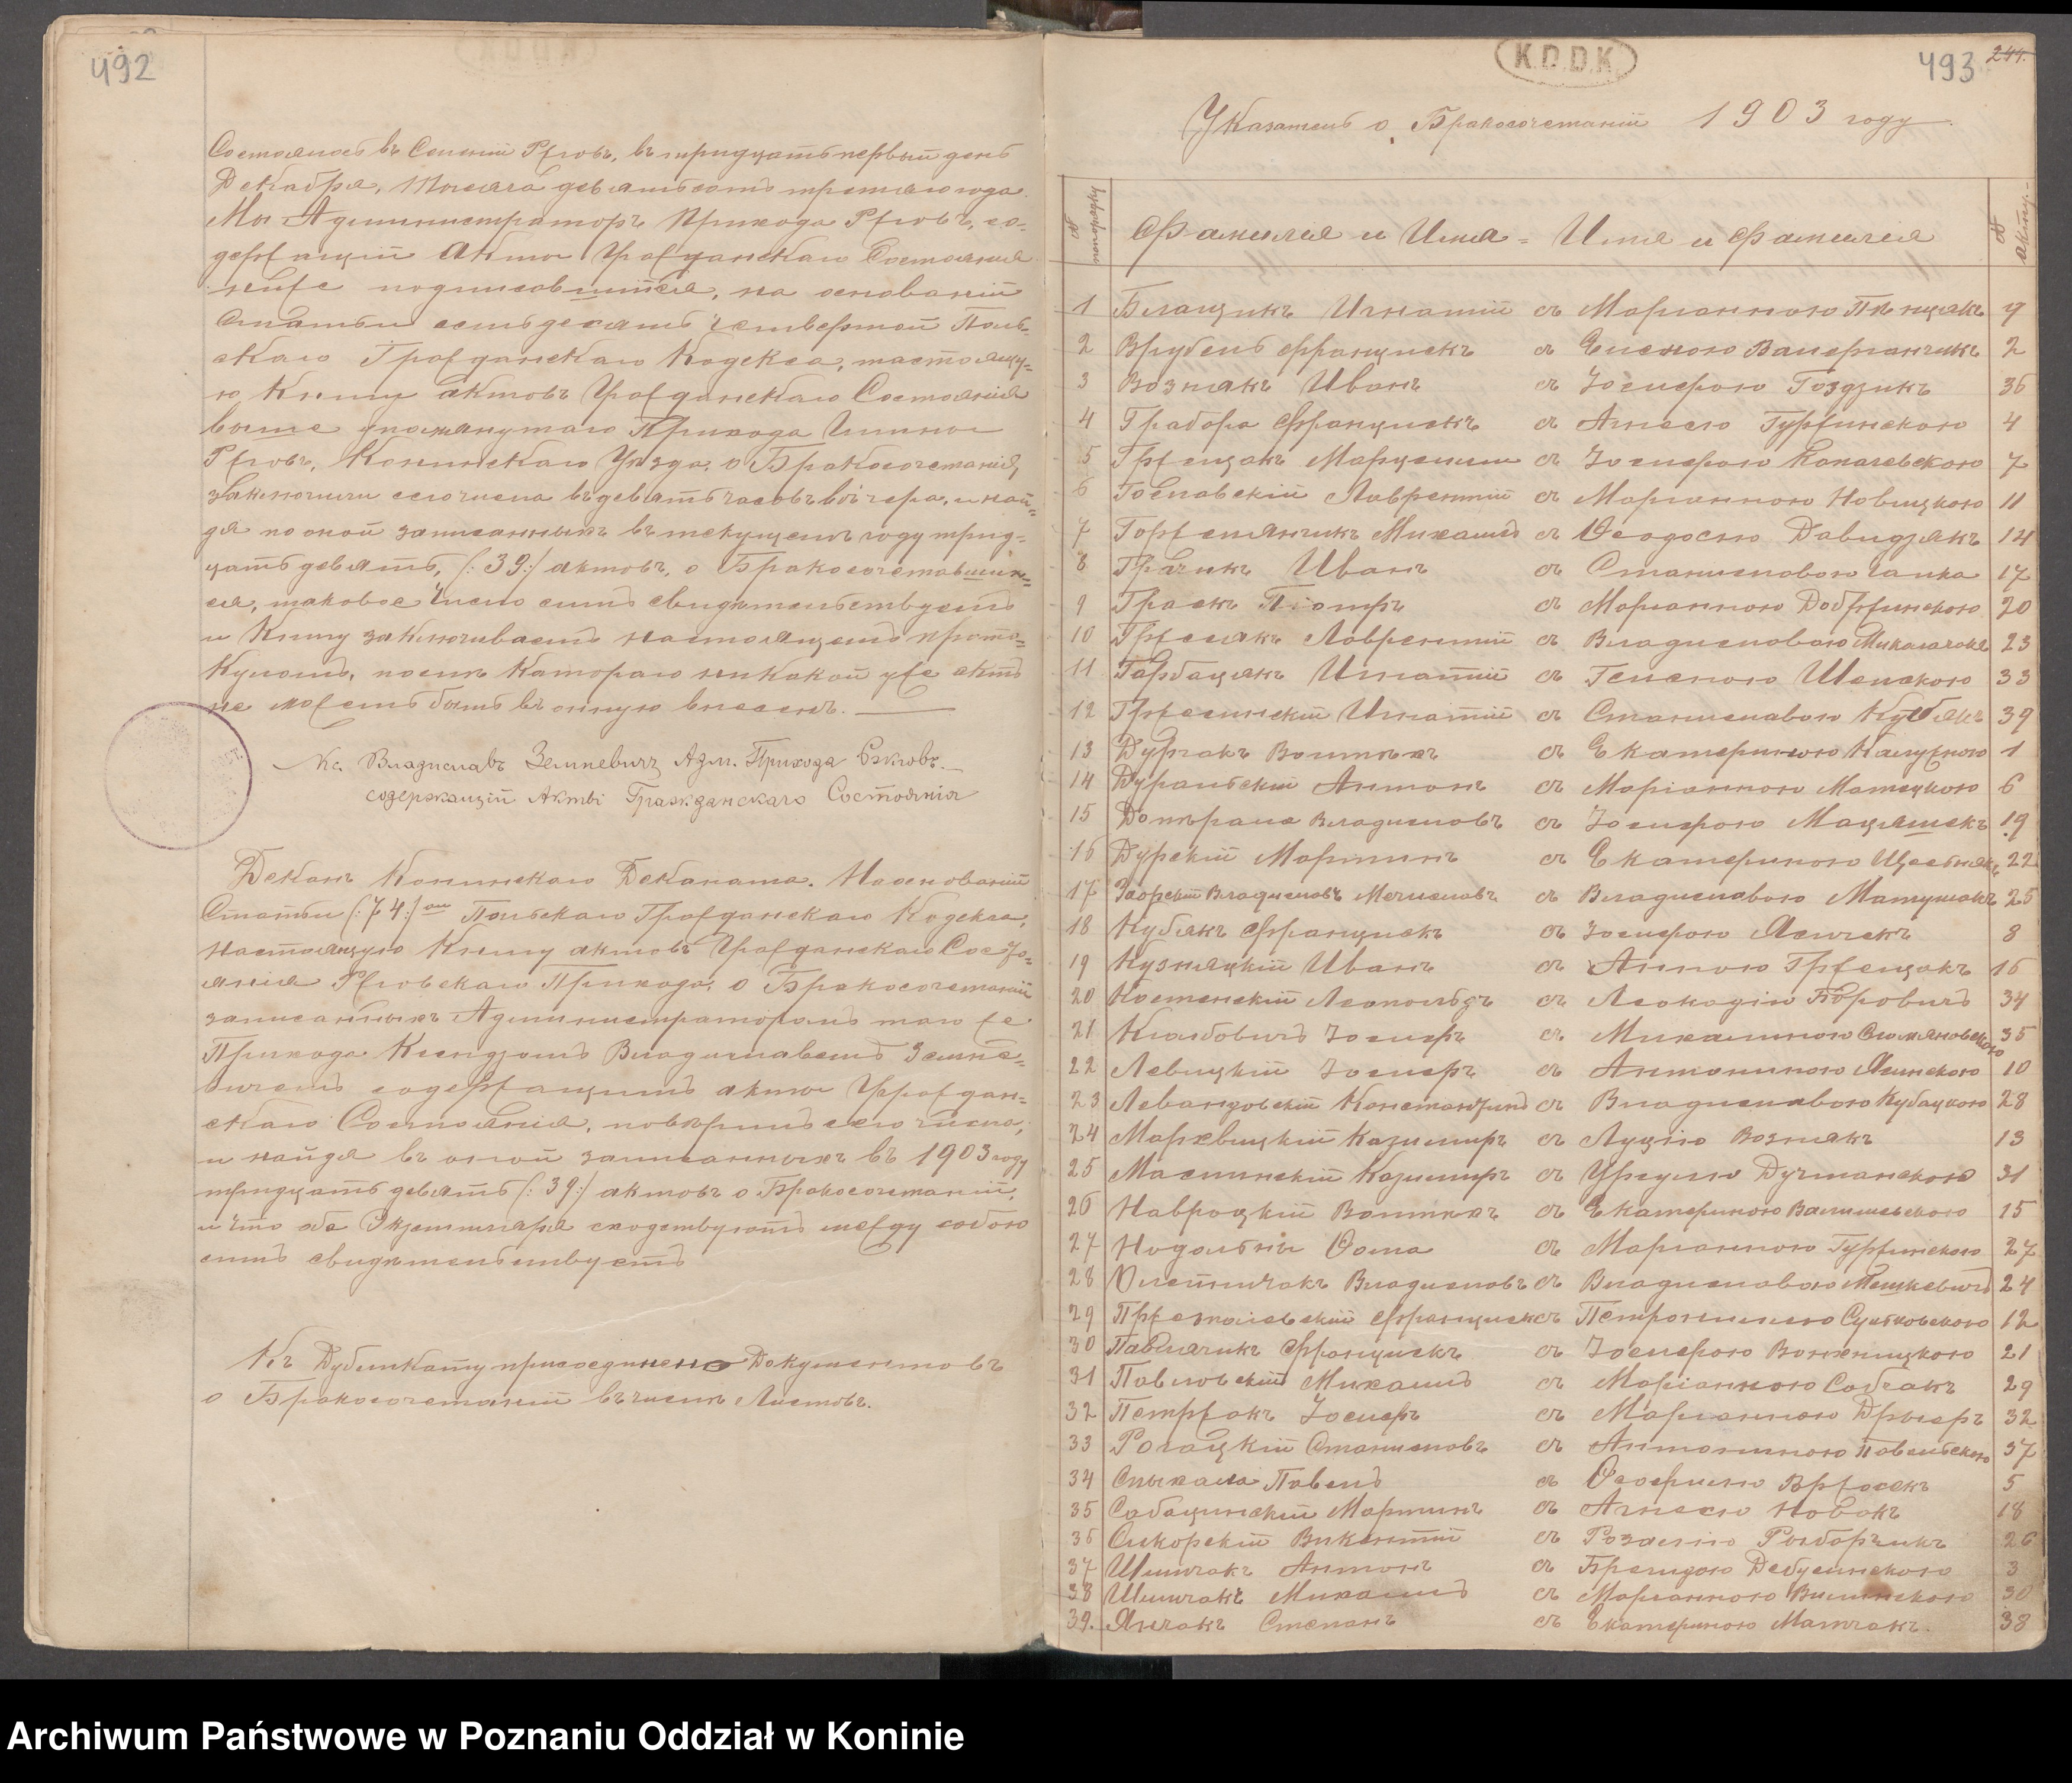 492
Состоялось въ Селеніи Ржговъ, въ тридцать первый день
Декабря, тысяча девятьсотъ третьяго года.
Мы Администраторъ Прихода Ржговъ, со-
держащій Акты Гражданскаго Состоянія
ниже подписавшійся, на основаніи
Статьи семьдесятъ четвертой Поль-
скаго Гражданскаго Кодекса, настоящу-
ю Книгу актовъ Гражданскаго Состоянія
выше упомянутаго Прихода Гмины
Ржговъ, Конинскаго Уѣзда, о Бракосочетаніи,
заключили сего числа въ девять часовъ вечера, и най-
дя по оной записанныхъ въ текущемъ году трид-
цать девять, (:39:) актовъ, о Бракосочетавших-
ся, таковое число симъ свидѣтельствуетъ
и Книгу заключиваетъ настоящемъ прото-
куломъ, послѣ котораго никакой уже актъ
не можетъ быть въ оную внесенъ.
Кс. Владиславъ Земневичъ Адм. Прихода Ржговъ.
содержащій Акты Гражданскаго Состоянія
Деканъ Конинскаго Деканата. На основаніи
Статьи (:74:) ой Польскаго Гражданскаго Кодекса,
настоящую Книгу актовъ Гражданскаго Состо-
янія Ржговскаго Прихода, о Бракосочетаніи
записанныхъ Администраторомъ того же
Прихода Ксендзомъ Владиславомъ Земне-
вичемъ содержащимъ акты Граждан-
скаго Состоянія, повѣрилъ сего числа,
и найдя въ оной записанныхъ въ 1903 году
тридцать девять (:39:) актовъ о Бракосочетаніи,
и что оба Экземпляра сходствуютъ между собою
симъ свидѣтельствуетъ
Къ Дубликату присоединено Документовъ
о Бракосочетаніи въ числѣ Листовъ.
K.D.D.K.
493 244.
Указатель о Бракосочетаніи 1903 году
№ Фамилія и Имя = Имя и Фамилія № акта
1 Блащикъ Игнатій съ Маріанною 9
2 Врубель Францискъ съ Еленою Валерянчикъ 2
3 Вознякъ Иванъ съ Іосифою Гоздзикъ 36
4 Грабора Францискъ съ Агнесою Гуржинскою 4
5 Гржещакъ съ Іосифою Копачевскою 7
6 Гославскій Лаврентій съ Маріанною Новицкою 11
7 Горжелянчикъ Михаилъ съ Ѳеодосію Давидзякъ 14
8 Грачикъ Иванъ съ Станиславою Чапка 17
9 Грась Піотръ съ Маріанною Добржинскою 20
10 Гржелякъ Лаврентій съ Владиславою 23
11 Гарбацякъ Игнатій съ Геленою Шелскою 33
12 Гржесинскій Игнатій съ Станиславою Кубякъ 39
13 Дурчакъ Войтѣхъ съ Екатериною Калужною 1
14 Дуральскій Антонъ съ Маріанною Матецкою 6
15 Домѣрала Владиславъ съ Іосифою Мацяшекъ 19
16 Дурскій Мартинъ съ Екатериною 22
17 Владиславъ Мечиславъ съ Владиславою Матушакъ 25
18 Кубякъ Францискъ съ Іосифою Ясичекъ 8
19 Кузняцкій Иванъ съ Анною Гржещакъ 16
20 Костенскій Леопольдъ съ Леокадіи Боровичъ 34
21 Клюбовичъ Іосифъ съ Михалиною 35
22 Левицкій Іосифъ съ Антониною Ясинскою 10
23 Левандовскій Константинъ съ Владиславою Кубацкою 28
24 Мархвицкій Казимиръ съ Луцію Вознякъ 13
25 Маслинскій Казимиръ съ Урсулю Дучманскою 31
26 Навроцкій Войтѣхъ съ Екатериною Валишевскою 15
27 Надольны Ѳома съ Маріанною Гуржинскою 27
28 Олейничакъ Владиславъ съ Владиславою Мешкевичъ 24
29 Францискъ съ Петронилею Сулковскою 12
30 Павлячикъ Францискъ съ Іосифою 21
31 Павловскій Михаилъ съ Маріанною Собчакъ 29
32 Петржакъ Іосифъ съ Маріанною Дрыеръ 32
33 Рогацкій Станиславъ съ Антониною Павельскою 37
34 Спыхала Павелъ съ Ѳеофилю Вржосекъ 5
35 Сабацинскій Мартинъ съ Агнесю Новакъ 18
36 Сикорскій Викентій съ Розалію Рыбарчикъ 26
37 Шимчакъ Антонъ съ Брегидою Дебуслнскою 3
38 Шимчакъ Михаилъ съ Маріанною Вилинскою 30
39. Янчакъ Степанъ съ Екатериною Матчакъ. 38
Archiwum Państwowe w Poznaniu Oddział w Koninie